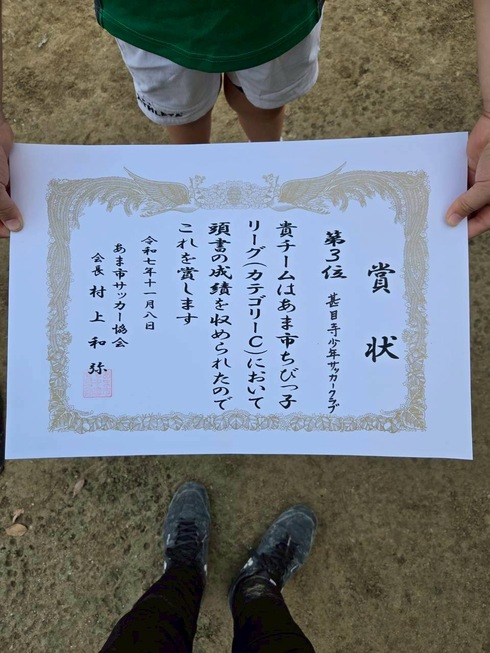 賞状
第3位 甚目寺少年サッカークラブ
貴チームはあま市ちびっ子
リーグ(カテゴリーC)において
頭書の成績を収められたので
これを賞します
令和七年十一月八日
あま市サッカー協会
会長 村上和弥
ATHLETA